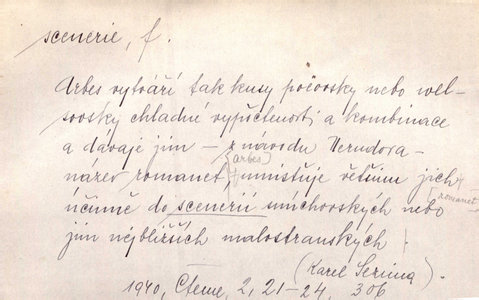 scenerie, f.
Arbes vytváří tak kusy poëovsky nebo wel-
sovsky chladné vypočtenosti a kombinace
a dávaje jim – z návodu Nerudova –
(arbes)
název romanet, umisťuje většinu jich
(romanet)
účinně do scenerií smíchovských nebo
jim nejbližších malostranských
(Karel Sezima)
1940, Čteme, 2, 21-24, 306